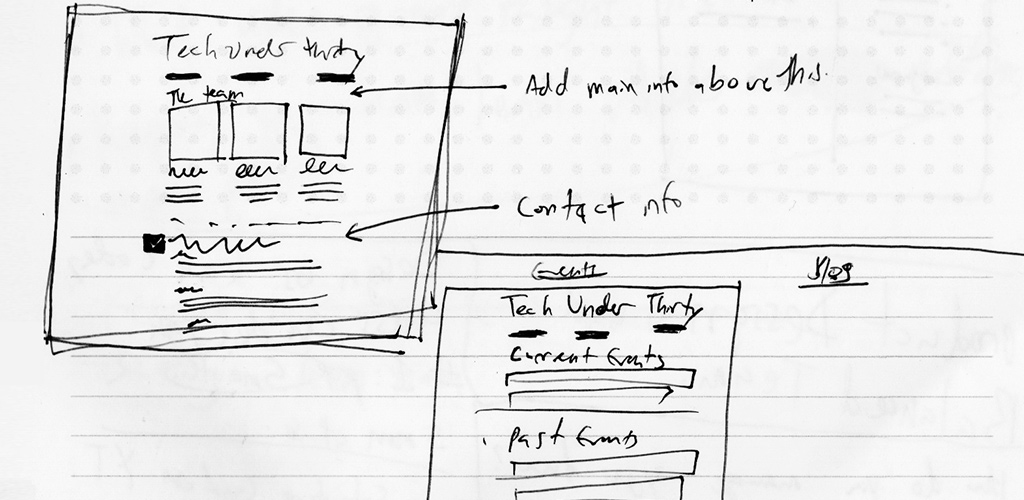 Tech Under thirty
The team
Add main info above this.
Contact info
Events
Blog
Tech Under Thirty
Current Events
Past Events